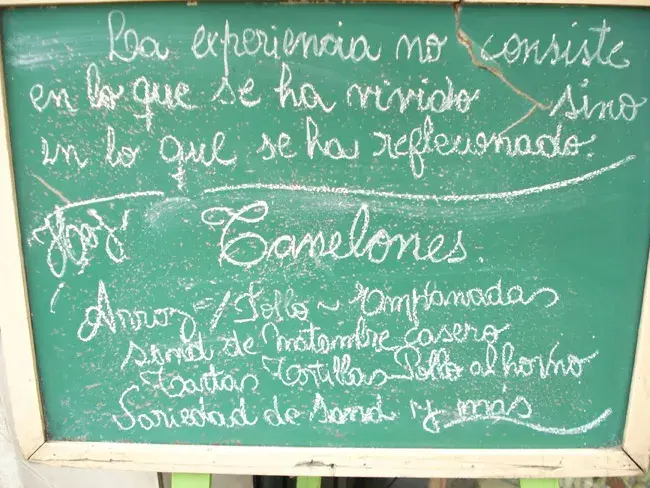 La experiencia no consiste
en lo que se ha vivido sino
en lo que se ha reflexionado.
Hoy Canelones.
Arroz c/ Pollo ~ Empanadas
sand de matambre casero
Tartas Tortillas Pollo al horno
Variedad de sand y más